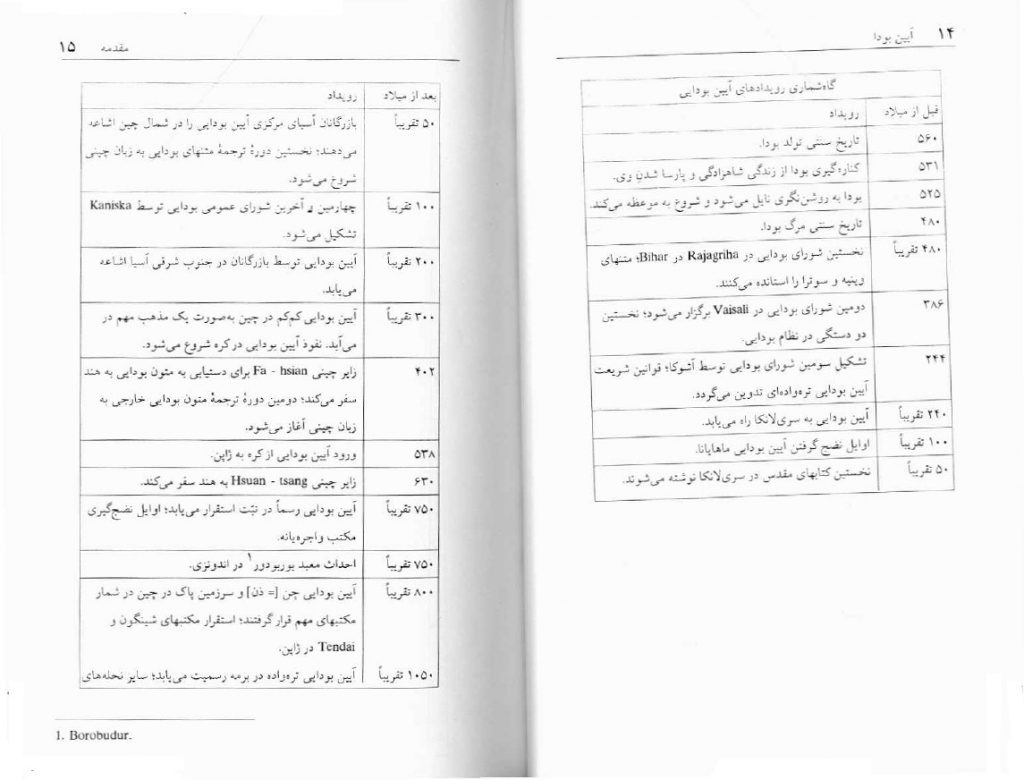 ۱۴ آیین بودا
گاه‌شماری رویدادهای آیین بودایی
قبل از میلاد رویداد
۵۶۰ تاریخ سنتی تولد بودا.
۵۳۱ کناره‌گیری بودا از زندگی شاهزادگی و پارسا شدنِ وی.
۵۲۵ بودا به روشن‌نگری نایل می‌شود و شروع به موعظه می‌کند.
۴۸۰ تاریخ سنتی مرگ بودا.
۴۸۰ تقریباً نخستین شورای بودایی در Rajagriha در Bihar؛ متنهای
وینیه و سوترا را استانده می‌کنند.
۳۸۶ دومین شورای بودایی در Vaisali برگزار می‌شود؛ نخستین
دو دستگی در نظام بودایی.
۲۴۴ تشکیل سومین شورای بودایی توسط آشوکا؛ قوانین شریعت
آیین بودایی تره‌واده‌ای تدوین می‌گردد.
۲۴۰ تقریباً آیین بودایی به سری‌لانکا راه می‌یابد.
۱۰۰ تقریباً اوایل نضج گرفتن آیین بودایی ماهایانا.
۵۰ تقریباً نخستین کتابهای مقدس در سری‌لانکا نوشته می‌شوند.
مقدمه ۱۵
بعد از میلاد رویداد
۵۰ تقریباً بازرگانان آسیای مرکزی آیین بودایی را در شمال چین اشاعه
می‌دهند؛ نخستین دورهٔ ترجمهٔ متنهای بودایی به زبان چینی
شروخ می‌شود.
۱۰۰ تقریباً چهارمین و آخرین شورای عمومی بودایی توسط Kaniska
تشکیل می‌شود.
۲۰۰ تقریباً آیین بودایی توسط بازرگانان در جنوب شرقی آسیا اشاعه
می‌یابد.
۳۰۰ تقریباً آیین بودایی کم‌کم در چین به‌صورت یک مذهب مهم در
می‌آید. نفوذ آیین بودایی در کره شروع می‌شود.
۴۰۲ زایر چینی Fa - hsian برای دستیابی به متون بودایی به هند
سفر می‌کند؛ دومین دورهٔ ترجمهٔ متون بودایی خارجی به
زبان چینی آغاز می‌شود.
۵۳۸ ورود آیین بودایی از کره به ژاپن.
۶۳۰ زایر چینی Hsuan - tsang به هند سفر می‌کند.
۷۵۰ تقریباً آیین بودایی رسماً در تبّت استقرار می‌یابد؛ اوایل نضج‌گیری
مکتب واجره‌یانه.
۷۵۰ تقریباً احداث معبد بوربودور۱ در اندونزی.
۸۰۰ تقریباً آیین بودایی چن [= ذن] و سرزمین پاک در چین در شمار
مکتبهای مهم قرار گرفتند؛ استقرار مکتبهای شینگون و
Tendai در ژاپن.
۱۰۵۰ تقریباً آیین بودایی تره‌واده در برمه رسمیت می‌یابد؛ سایر نحله‌های
1. Borobudur.